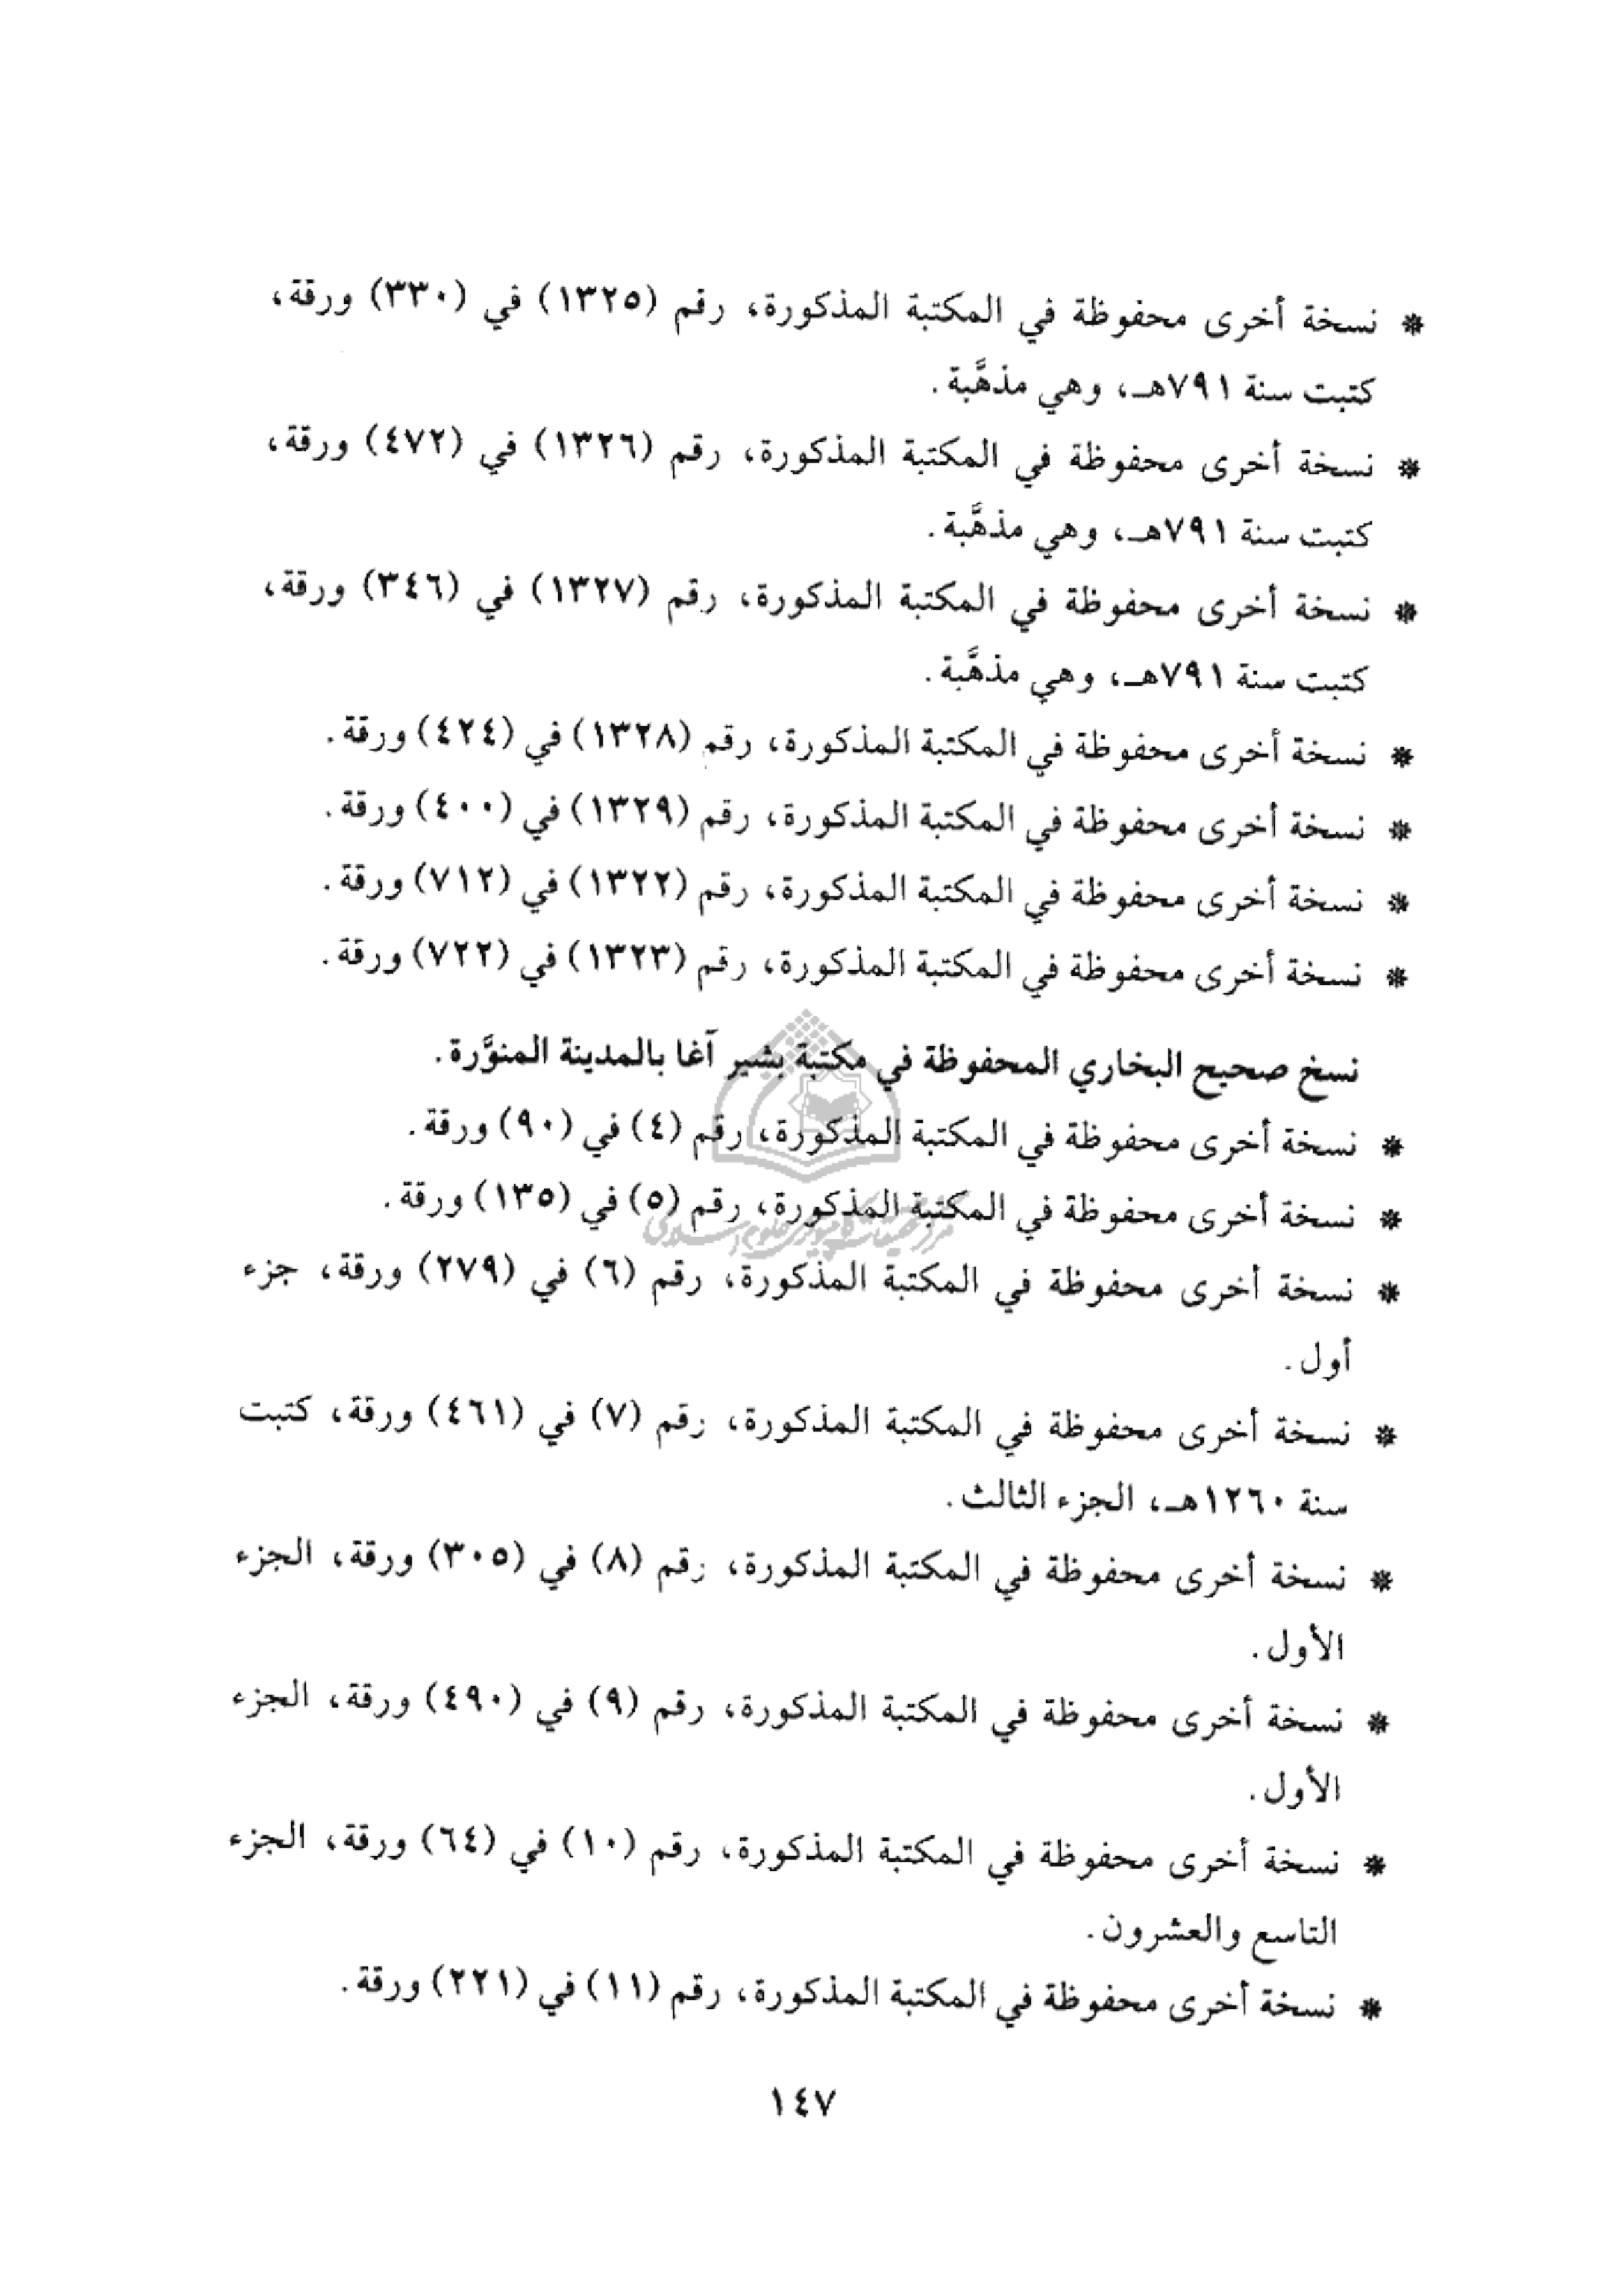 * نسخة أخرى محفوظة في المكتبة المذكورة، رقم (١٣٢٥) في (٣٣٠) ورقة،
كتبت سنة ٧٩١هـ، وهي مذهَّبة.
* نسخة أخرى محفوظة في المكتبة المذكورة، رقم (١٣٢٦) في (٤٧٢) ورقة،
كتبت سنة ٧٩١هـ، وهي مذهَّبة.
* نسخة أخرى محفوظة في المكتبة المذكورة، رقم (١٣٢٧) في (٣٤٦) ورقة،
كتبت سنة ٧٩١هـ، وهي مذهَّبة.
* نسخة أخرى محفوظة في المكتبة المذكورة، رقم (١٣٢٨) في (٤٢٤) ورقة.
* نسخة أخرى محفوظة في المكتبة المذكورة، رقم (١٣٢٩) في (٤٠٠) ورقة.
* نسخة أخرى محفوظة في المكتبة المذكورة، رقم (١٣٢٢) في (٧١٢) ورقة.
* نسخة أخرى محفوظة في المكتبة المذكورة، رقم (١٣٢٣) في (٧٢٢) ورقة.
نسخ صحيح البخاري المحفوظة في مكتبة بشير آغا بالمدينة المنوَّرة.
* نسخة أخرى محفوظة في المكتبة المذكورة، رقم (٤) في (٩٠) ورقة.
* نسخة أخرى محفوظة في المكتبة المذكورة، رقم (٥) في (١٣٥) ورقة.
مرکز تحقیقات کامپیوتری علوم اسلامی
* نسخة أخرى محفوظة في المكتبة المذكورة، رقم (٦) في (٢٧٩) ورقة، جزء
أول.
* نسخة أخرى محفوظة في المكتبة المذكورة، رقم (٧) في (٤٦١) ورقة، كتبت
سنة ١٢٦٠هـ، الجزء الثالث.
* نسخة أخرى محفوظة في المكتبة المذكورة، رقم (٨) في (٣٠٥) ورقة، الجزء
الأول.
* نسخة أخرى محفوظة في المكتبة المذكورة، رقم (٩) في (٤٩٠) ورقة، الجزء
الأول.
* نسخة أخرى محفوظة في المكتبة المذكورة، رقم (١٠) في (٦٤) ورقة، الجزء
التاسع والعشرون.
* نسخة أخرى محفوظة في المكتبة المذكورة، رقم (١١) في (٢٢١) ورقة.
١٤٧